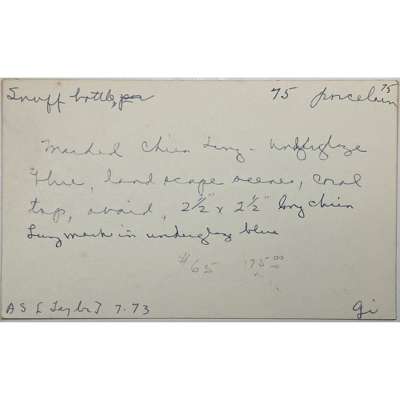 Snuff bottle, 75 porcelain 75
Marked Chien Lung - Underglaze
blue, landscape scenes, coral
top, ovoid, 2 1/2" x 2 1/2" chien
Lung mark in underglaze blue
$165 175.00
AS [Taylor] 7.73 gi